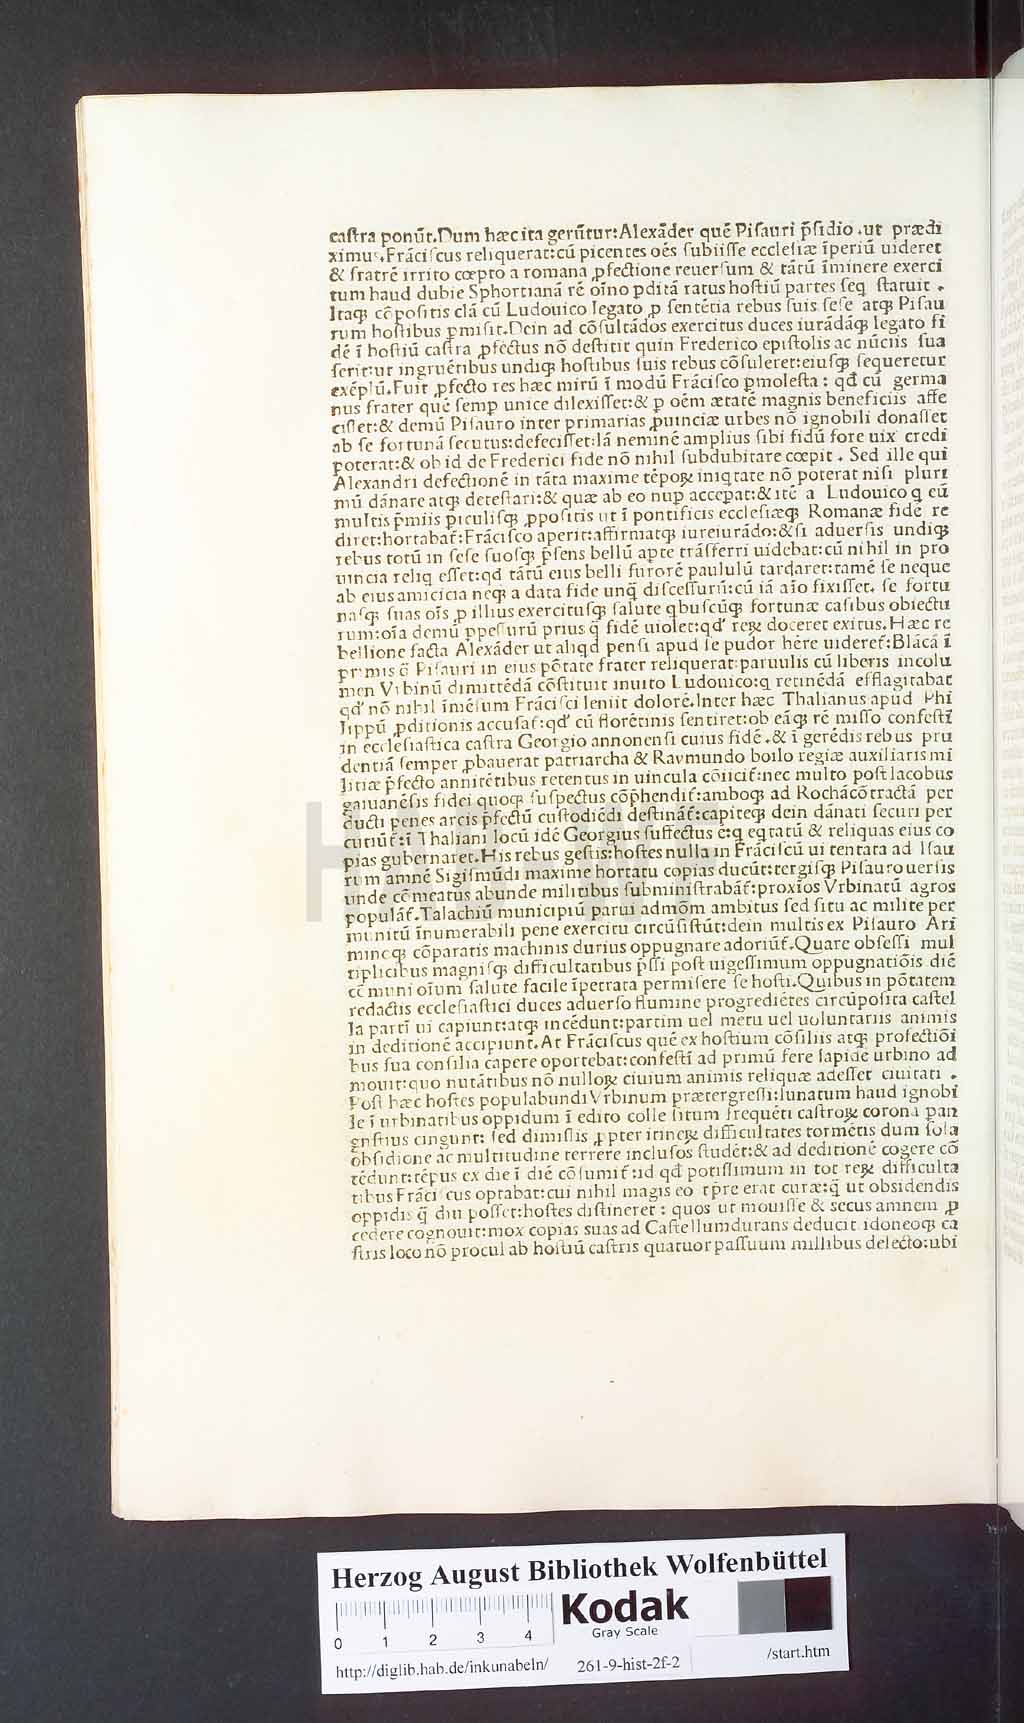 caſtra ponūt.Dum hæc ita gerūtur:Alexāder quē Piſauri p̄ſidio .ut prædi
ximus.Frāciſcus reliquerat:cū picentes oēs ſubiiſſe eccleſiæ īperiū uideret
& fratrē irrito cœpto a romana ꝓfectione reuerſum & tātū īminere exerci
tum haud dubie Sphortianā rē oīno ꝑditā ratus hoſtiū partes ſeq ſtatuit .
Itaqꝫ cōpoſitis clā cū Ludouico legato ꝓ ſentētia rebus ſuis ſeſe atqꝫ Piſau
rum hoſtibus ꝑmiſit.Dein ad cōſultādos exercitus duces iurādāqꝫ legato fi
dē ī hoſtiū caſtra ꝓfectus nō deſtitit quin Frederico epiſtolis ac nūciis ſua
ſerit:ut ingruētibus undiqꝫ hoſtibus ſuis rebus cōſuleret:eiuſqꝫ ſequeretur
exēplū.Fuit ꝓfecto res hæc mirū ī modū Frāciſco ꝑmoleſta : qđ cū germa
nus frater quē ſemꝑ unice dilexiſſet:& ꝑ oēm ætatē magnis beneficiis affe
ciſſet:& demū Piſauro inter primarias ꝓuinciæ urbes nō ignobili donaſſet
ab ſe fortunā ſecutus:defeciſſet:Iā neminē amplius ſibi fidū fore uix credi
poterat:& ob id de Frederici fide nō nihil ſubdubitare cœpit . Sed ille qui
Alexandri defectionē in tāta maxime tēpoꝝ iniqtate nō poterat niſi pluri
mū dānare atqꝫ deteſtari:& quæ ab eo nuꝑ acceꝑat:& itē a Ludouico q eū
multis p̄miis ꝑiculiſqꝫ ꝓpoſitis ut ī pontificis eccleſiæqꝫ Romanæ fidē re
diret:hortabat̄:Frāciſco aperit:affirmatqꝫ iureiurādo:&ſi aduerſis undiqꝫ
rebus totū in ſeſe ſuoſqꝫ p̄ſens bellū apte trāſferri uidebat:cū nihil in pro
uincia reliq eſſet:qđ tātū eius belli furorē paululū tardaret:tamē ſe neque
ab eius amicicia neqꝫ a data fide unq̄ diſceſſurū:cū iā aīo fixiſſet. ſe fortu
naſqꝫ ſuas oīs ꝓ illius exercituſqꝫ ſalute qbuſcūqꝫ fortunæ caſibus obiectu
rum:oīa demū ꝑpeſſurū prius q̄ fidē uiolet:qđ reꝝ doceret exitus.Hæc re
bellione facta Alexāder ut aliqđ penſi apud ſe pudor hēre uideret̄:Blācā ī
primis q̄ Piſauri in eius pōtate frater reliquerat:paruulis cū liberis incolu
men Vrbinū dimittēdā cōſtituit inuito Ludouico:q retinēdā efflagitabat
qđ nō nihil īmēſum Frāciſci leniit dolorē.Inter hæc Thalianus apud Phi
lippū ꝓditionis accuſat̄:qđ cū florētinis ſentiret:ob eāqꝫ rē miſſo confeſtī
in eccleſiaſtica caſtra Georgio annonenſi cuius fidē .& ī gerēdis rebus pru
dentiā ſemper ꝓbauerat patriarcha & Raymundo boilo regiæ auxiliaris mi
litiæ p̄fecto annitētibus retentus in uincula cōiicit̄:nec multo poſt Iacobus
gaiuanēſis fidei quoqꝫ ſuſpectus cōp̄hendit̄:amboqꝫ ad Rochācōtractā per
ducti penes arcis p̄fectū cuſtodiēdi deſtināt̄:capiteqꝫ dein dānati ſecuri per
cutiūt̄:ī Thaliani locū idē Georgius ſuffectus ē:q eqtatū & reliquas eius co
pias gubernaret.His rebus geſtis:hoſtes nulla in Frāciſcū ui tentata ad Iſau
rum amnē Sigiſmūdi maxime hortatu copias ducūt:tergiſqꝫ Piſauro uerſis
unde cōmeatus abunde militibus ſubminiſtrabāt̄:proxīos Vrbinatū agros
populāt̄.Talachiū municipiū parui admōm ambitus ſed ſitu ac milite per
munitū īnumerabili pene exercitu circūſiſtūt:dein multis ex Piſauro Ari
mineqꝫ cōparatis machinis durius oppugnare adoriūt̄.Quare obſeſſi mul
tiplicibus magniſqꝫ difficultatibus p̄ſſi poſt uigeſſimum oppugnatiōis diē
cōmuni oīum ſalute facile īpetrata permiſere ſe hoſti.Quibus in pōtatem
redactis eccleſiaſtici duces aduerſo flumine progrediētes circūpoſita caſtel
la partī ui capiunt:atqꝫ incēdunt:partim uel metu uel uoluntariis animis
in deditionē accipiunt.At Frāciſcus quē ex hoſtium cōſiliis atqꝫ profectiōi
bus ſua conſilia capere oportebat:confeſtī ad primū fere lapidē urbino ad
mouit:quo nutātibus nō nulloꝝ ciuium animis reliquæ adeſſet ciuitati .
Poſt hæc hoſtes populabundi Vrbinum prætergreſſi:lunatum haud ignobi
le ī urbinatibus oppidum ī edito colle ſitum frequēti caſtroꝝ corona
 cingunt: ſed dimiſſis ꝓpter itineꝝ difficultates tormētis dum ſola
obſidione ac multitudine terrere incluſos ſtudēt:& ad deditionē cogere cō
tēdunt:tēpus ex die ī diē cōſumit̄:id qđ potiſſimum in tot reꝝ difficulta
tibus Frāciſcus optabat:cui nihil magis eo tp̄re erat curæ:q̄ ut obſidendis
oppidis q̄ diu poſſet:hoſtes diſtineret : quos ut mouiſſe & ſecus amnem ꝓ
cedere cognouit:mox copias ſuas ad Caſtellumdurans deducit idoneoqꝫ ca
ſtris loco nō procul ab hoſtiū caſtris quatuor paſſuum millibus delecto:ubi
HAB WF
Herzog August Bibliothek Wolfenbüttel
0 1 2 3 4
Kodak
Gray Scale
http://diglib.hab.de/inkunabeln/ 261-9-hist-2f-2 /start.htm